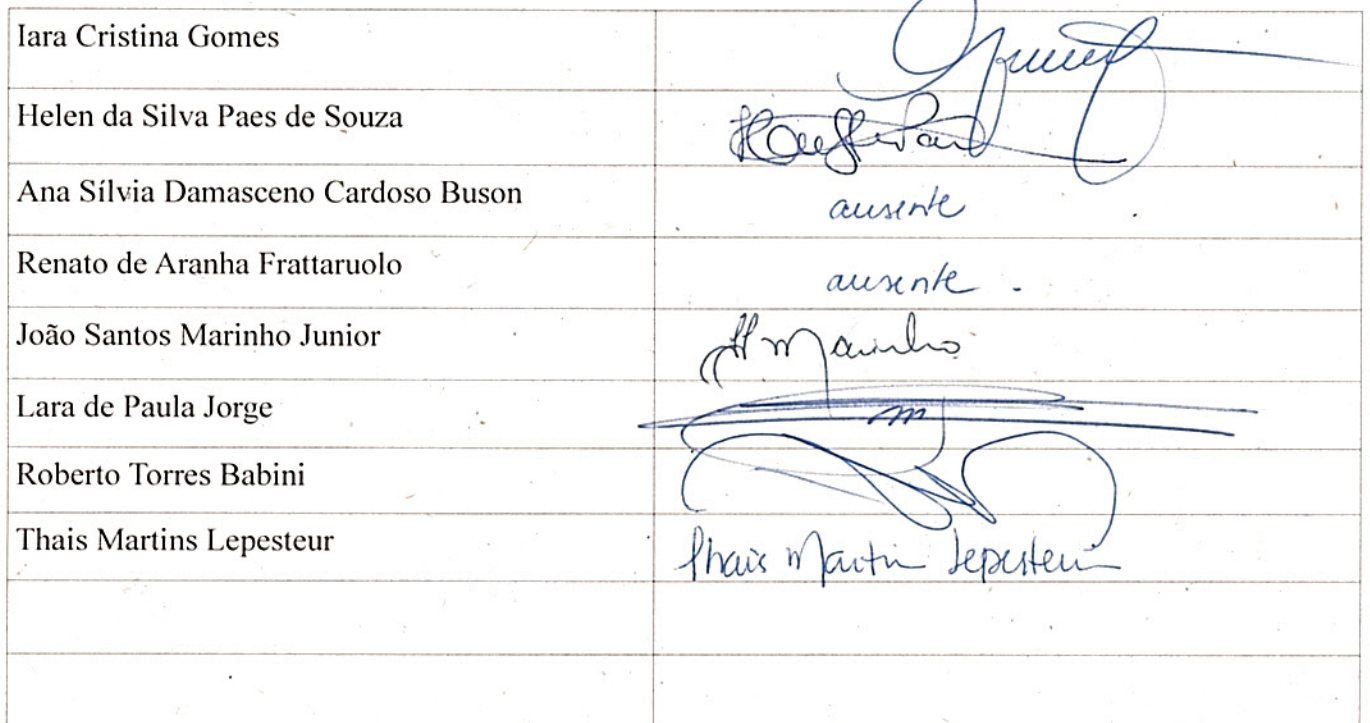 Iara Cristina Gomes
Helen da Silva Paes de Souza
Ana Sílvia Damasceno Cardoso Buson ausente
Renato de Aranha Frattaruolo ausente.
João Santos Marinho Junior Marinho
Lara de Paula Jorge
Roberto Torres Babini
Thais Martins Lepesteur Thais Martin Lepesteur